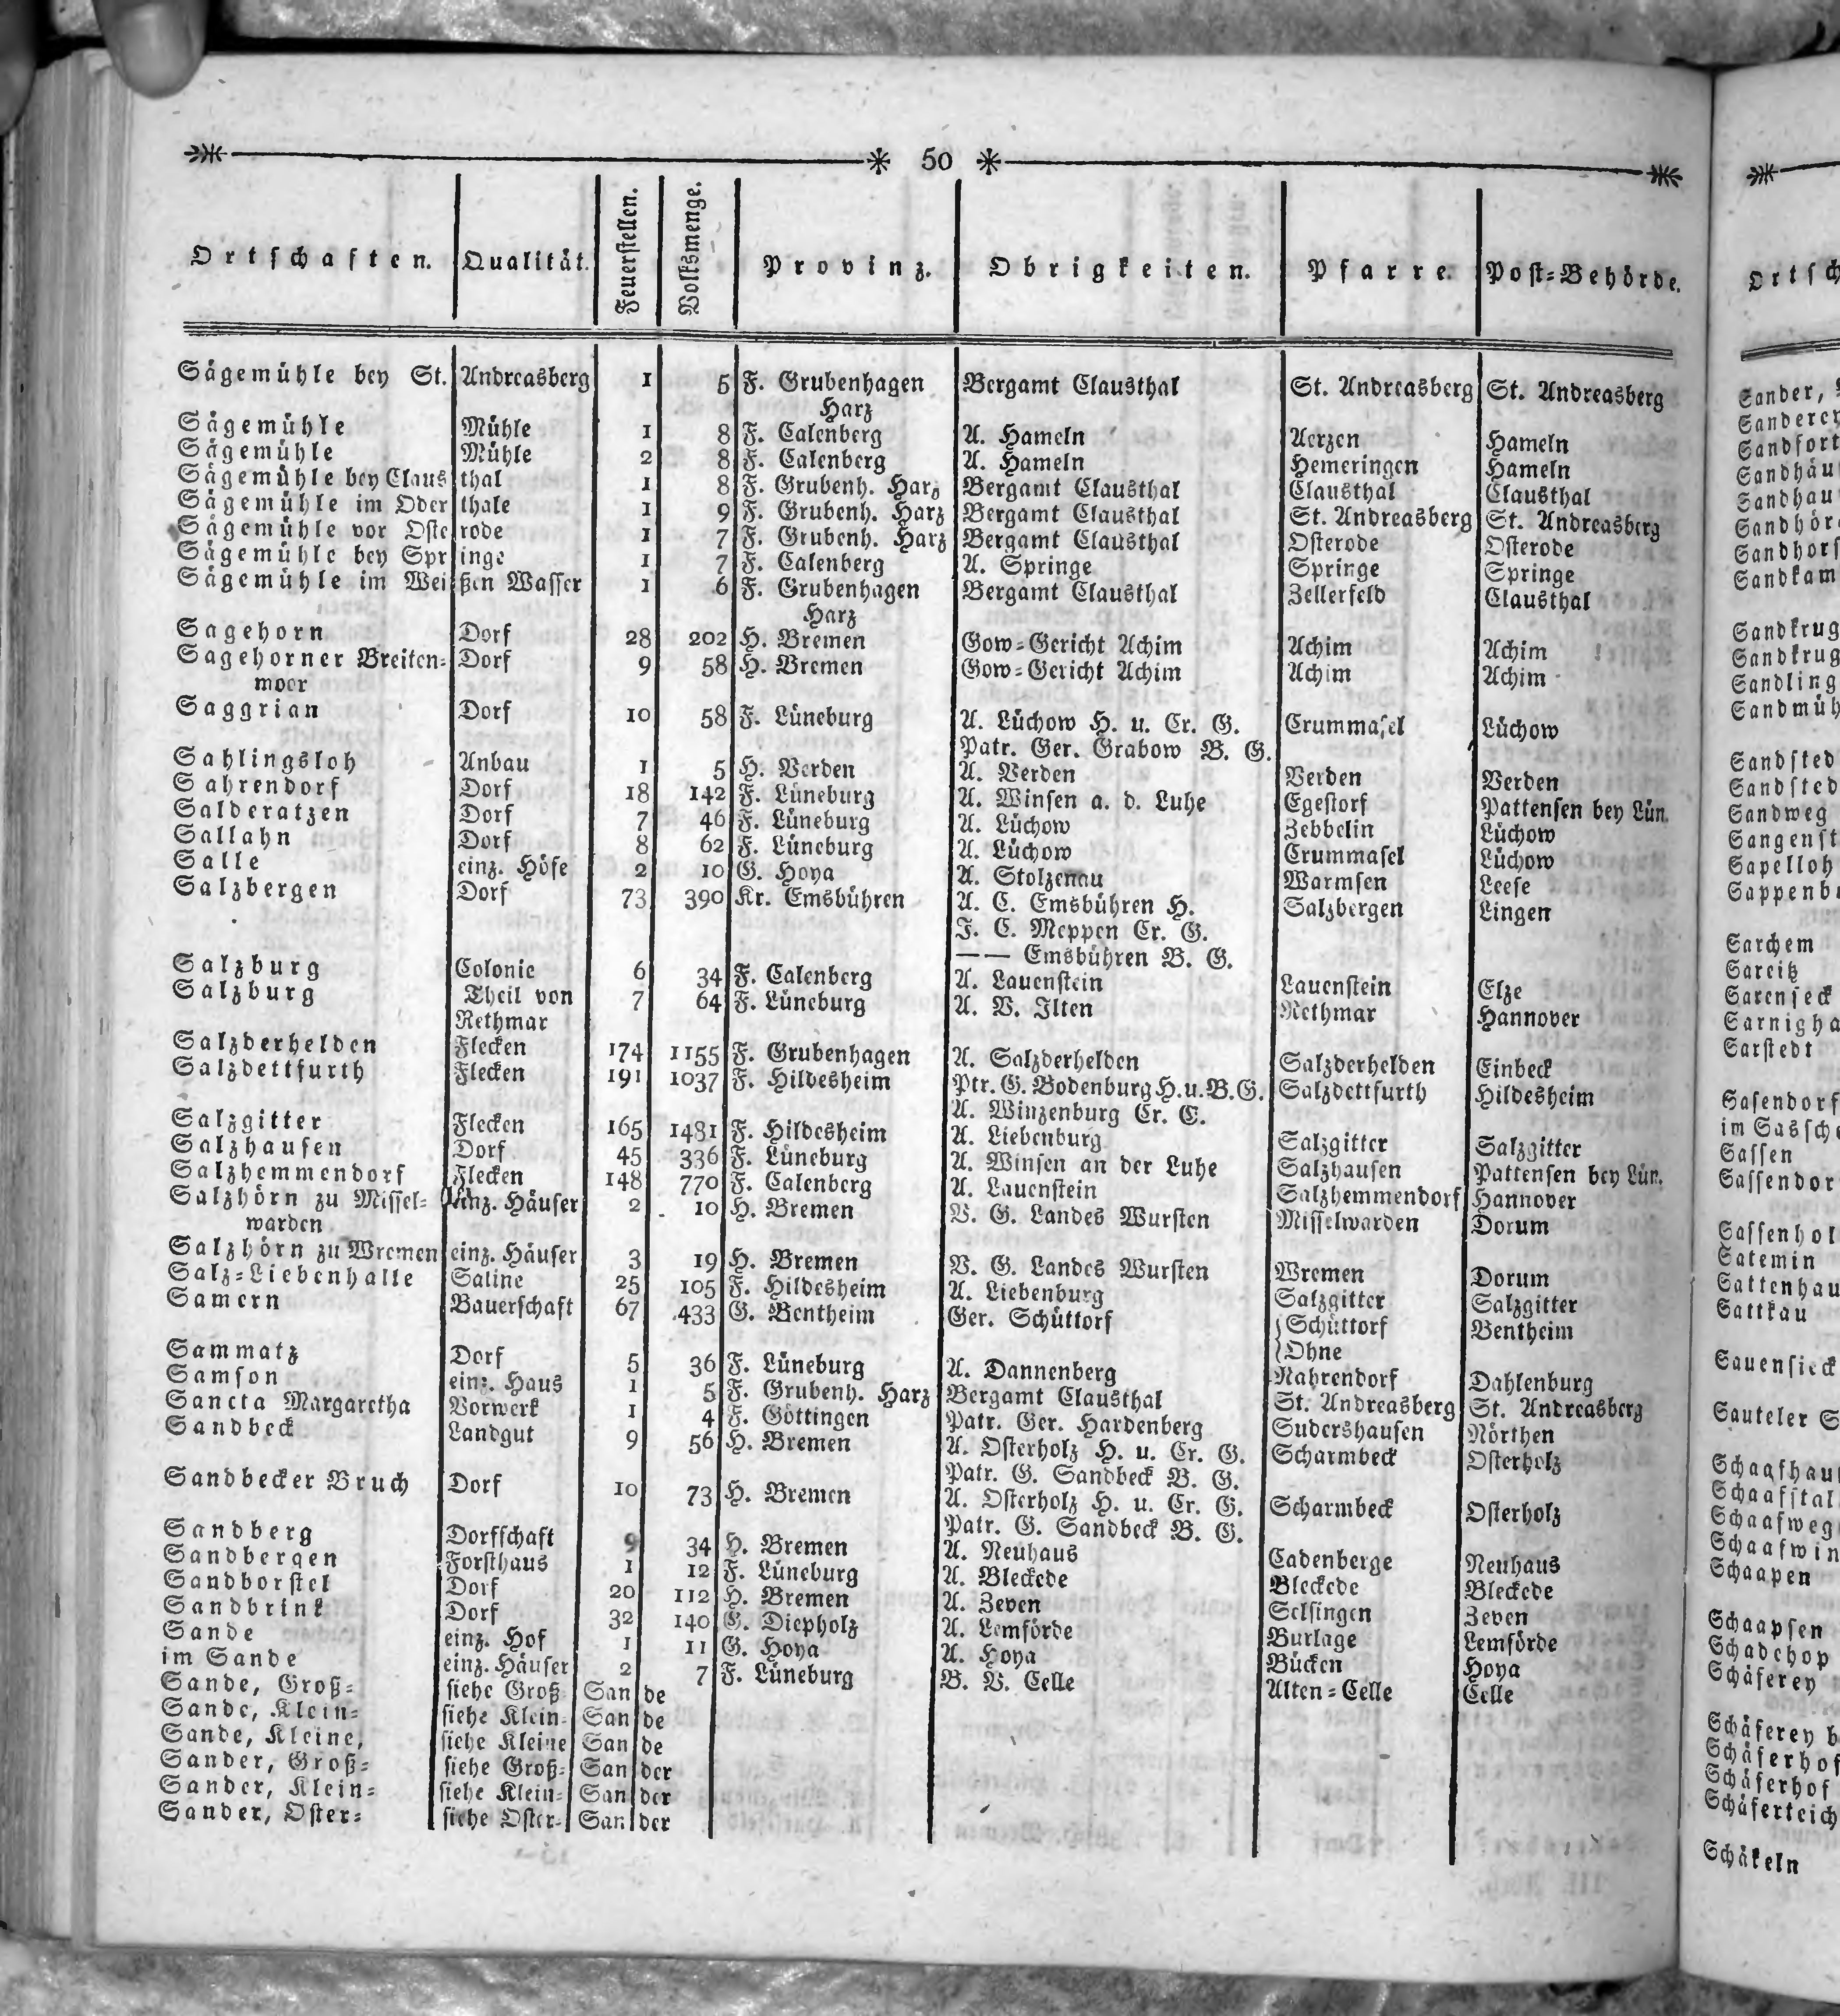 50
Ortschaften. Qualität. Feuerstellen. Volksmenge. Provinz. Obrigkeiten. Pfarre. Post=Behörde.
Sägemühle bey St. Andreasberg 1 5 F. Grubenhagen Bergamt Clausthal St. Andreasberg St. Andreasberg
Harz
Sägemühle Mühle 1 8 F. Calenberg A. Hameln Aerzen Hameln
Sägemühle Mühle 2 8 F. Calenberg A. Hameln Hemeringen Hameln
Sägemühle bey Claus thal 1 8 F. Grubenh. Harz Bergamt Clausthal Clausthal Clausthal
Sägemühle im Oder thale 1 9 F. Grubenh. Harz Bergamt Clausthal St. Andreasberg St. Andreasberg
Sägemühle vor Oste rode 1 7 F. Grubenh. Harz Bergamt Clausthal Osterode Osterode
Sägemühle bey Spr inge 1 7 F. Calenberg A. Springe Springe Springe
Sägemühle im Wei ßen Wasser 1 6 F. Grubenhagen Bergamt Clausthal Zellerfeld Clausthal
Harz
Sagehorn Dorf 28 202 H. Bremen Gow=Gericht Achim Achim Achim
Sagehorner Breiten= Dorf 9 58 H. Bremen Gow=Gericht Achim Achim Achim
moor
Saggrian Dorf 10 58 F. Lüneburg A. Lüchow H. u. Cr. G. Crummasel Lüchow
Patr. Ger. Grabow B. G.
Sahlingsloh Anbau 1 5 H. Verden A. Verden Verden Verden
Sahrendorf Dorf 18 142 F. Lüneburg A. Winsen a. d. Luhe Egestorf Pattensen bey Lün.
Salderatzen Dorf 7 46 F. Lüneburg A. Lüchow Zebbelin Lüchow
Sallahn Dorf 8 62 F. Lüneburg A. Lüchow Crummasel Lüchow
Salle einz. Höfe 2 10 G. Hoya A. Stolzenau Warmsen Leese
Salzbergen Dorf 73 390 Kr. Emsbühren A. C. Emsbühren H. Salzbergen Lingen
F. C. Meppen Cr. G.
—— Emsbühren B. G.
Salzburg Colonie 6 34 F. Calenberg A. Lauenstein Lauenstein Elze
Salzburg Theil von 7 64 F. Lüneburg A. V. Ilten Rethmar Hannover
Rethmar
Salzderhelden Flecken 174 1155 F. Grubenhagen A. Salzderhelden Salzderhelden Einbeck
Salzdettfurth Flecken 191 1037 F. Hildesheim Ptr. G. Bodenburg H. u. B. G. Salzdettfurth Hildesheim
A. Winzenburg Cr. C.
Salzgitter Flecken 165 1481 F. Hildesheim A. Liebenburg Salzgitter Salzgitter
Salzhausen Dorf 45 336 F. Lüneburg A. Winsen an der Luhe Salzhausen Pattensen bey Lün.
Salzhemmendorf Flecken 148 770 F. Calenberg A. Lauenstein Salzhemmendorf Hannover
Salzhörn zu Missel= einz. Häuser 2 10 H. Bremen V. G. Landes Wursten Misselwarden Dorum
warden
Salzhörn zu Wremen einz. Häuser 3 19 H. Bremen V. G. Landes Wursten Wremen Dorum
Salz=Liebenhalle Saline 25 105 F. Hildesheim A. Liebenburg Salzgitter Salzgitter
Samern Bauerschaft 67 433 G. Bentheim Ger. Schüttorf {Schüttorf Bentheim
{Ohne
Sammatz Dorf 5 36 F. Lüneburg A. Dannenberg Nahrendorf Dahlenburg
Samson einz. Haus 1 5 F. Grubenh. Harz Bergamt Clausthal St. Andreasberg St. Andreasberg
Sancta Margaretha Vorwerk 1 4 F. Göttingen Patr. Ger. Hardenberg Sudershausen Nörthen
Sandbeck Landgut 9 56 H. Bremen A. Osterholz H. u. Cr. G. Scharmbeck Osterholz
Patr. G. Sandbeck B. G.
Sandbecker Bruch Dorf 10 73 H. Bremen A. Osterholz H. u. Cr. G. Scharmbeck Osterholz
Patr. G. Sandbeck B. G.
Sandberg Dorfschaft 9 34 H. Bremen A. Neuhaus Cadenberge Neuhaus
Sandbergen Forsthaus 1 12 F. Lüneburg A. Bleckede Bleckede Bleckede
Sandborstel Dorf 20 112 H. Bremen A. Zeven Selsingen Zeven
Sandbrink Dorf 32 140 G. Diepholz A. Lemförde Burlage Lemförde
Sande einz. Hof 1 11 G. Hoya A. Hoya Bücken Hoya
im Sande einz. Häuser 2 7 F. Lüneburg B. V. Celle Alten=Celle Celle
Sande, Groß= siehe Groß Sande
Sande, Klein= siehe Klein- Sande
Sande, Kleine, siehe Kleine Sande
Sander, Groß= siehe Groß= Sander
Sander, Klein= siehe Klein= Sander
Sander, Oster= siehe Oster= Sander
Ortsch
Sander,
Sanderey
Sandfort
Sandhäu
Sandhau
Sandhör
Sandhors
Sandkam
Sandkrug
Sandkrug
Sandling
Sandmüh
Sandsted
Sandsted
Sandweg
Sangenst
Sapelloh
Sappenbu
Sarchem
Sareitz
Sarenseck
Sarnigha
Sarstedt
Sasendorf
im Sassche
Sassen
Sassendor
Sassenhol
Satemin
Sattenhau
Sattkau
Sauensieck
Sauteler S
Schaafhau
Schaafstal
Schaafweg
Schaafwin
Schaapen
Schaapsen
Schadehop
Schäferey
Schäferey b
Schäferhof
Schäferhof
Schäferteich
Schäkeln